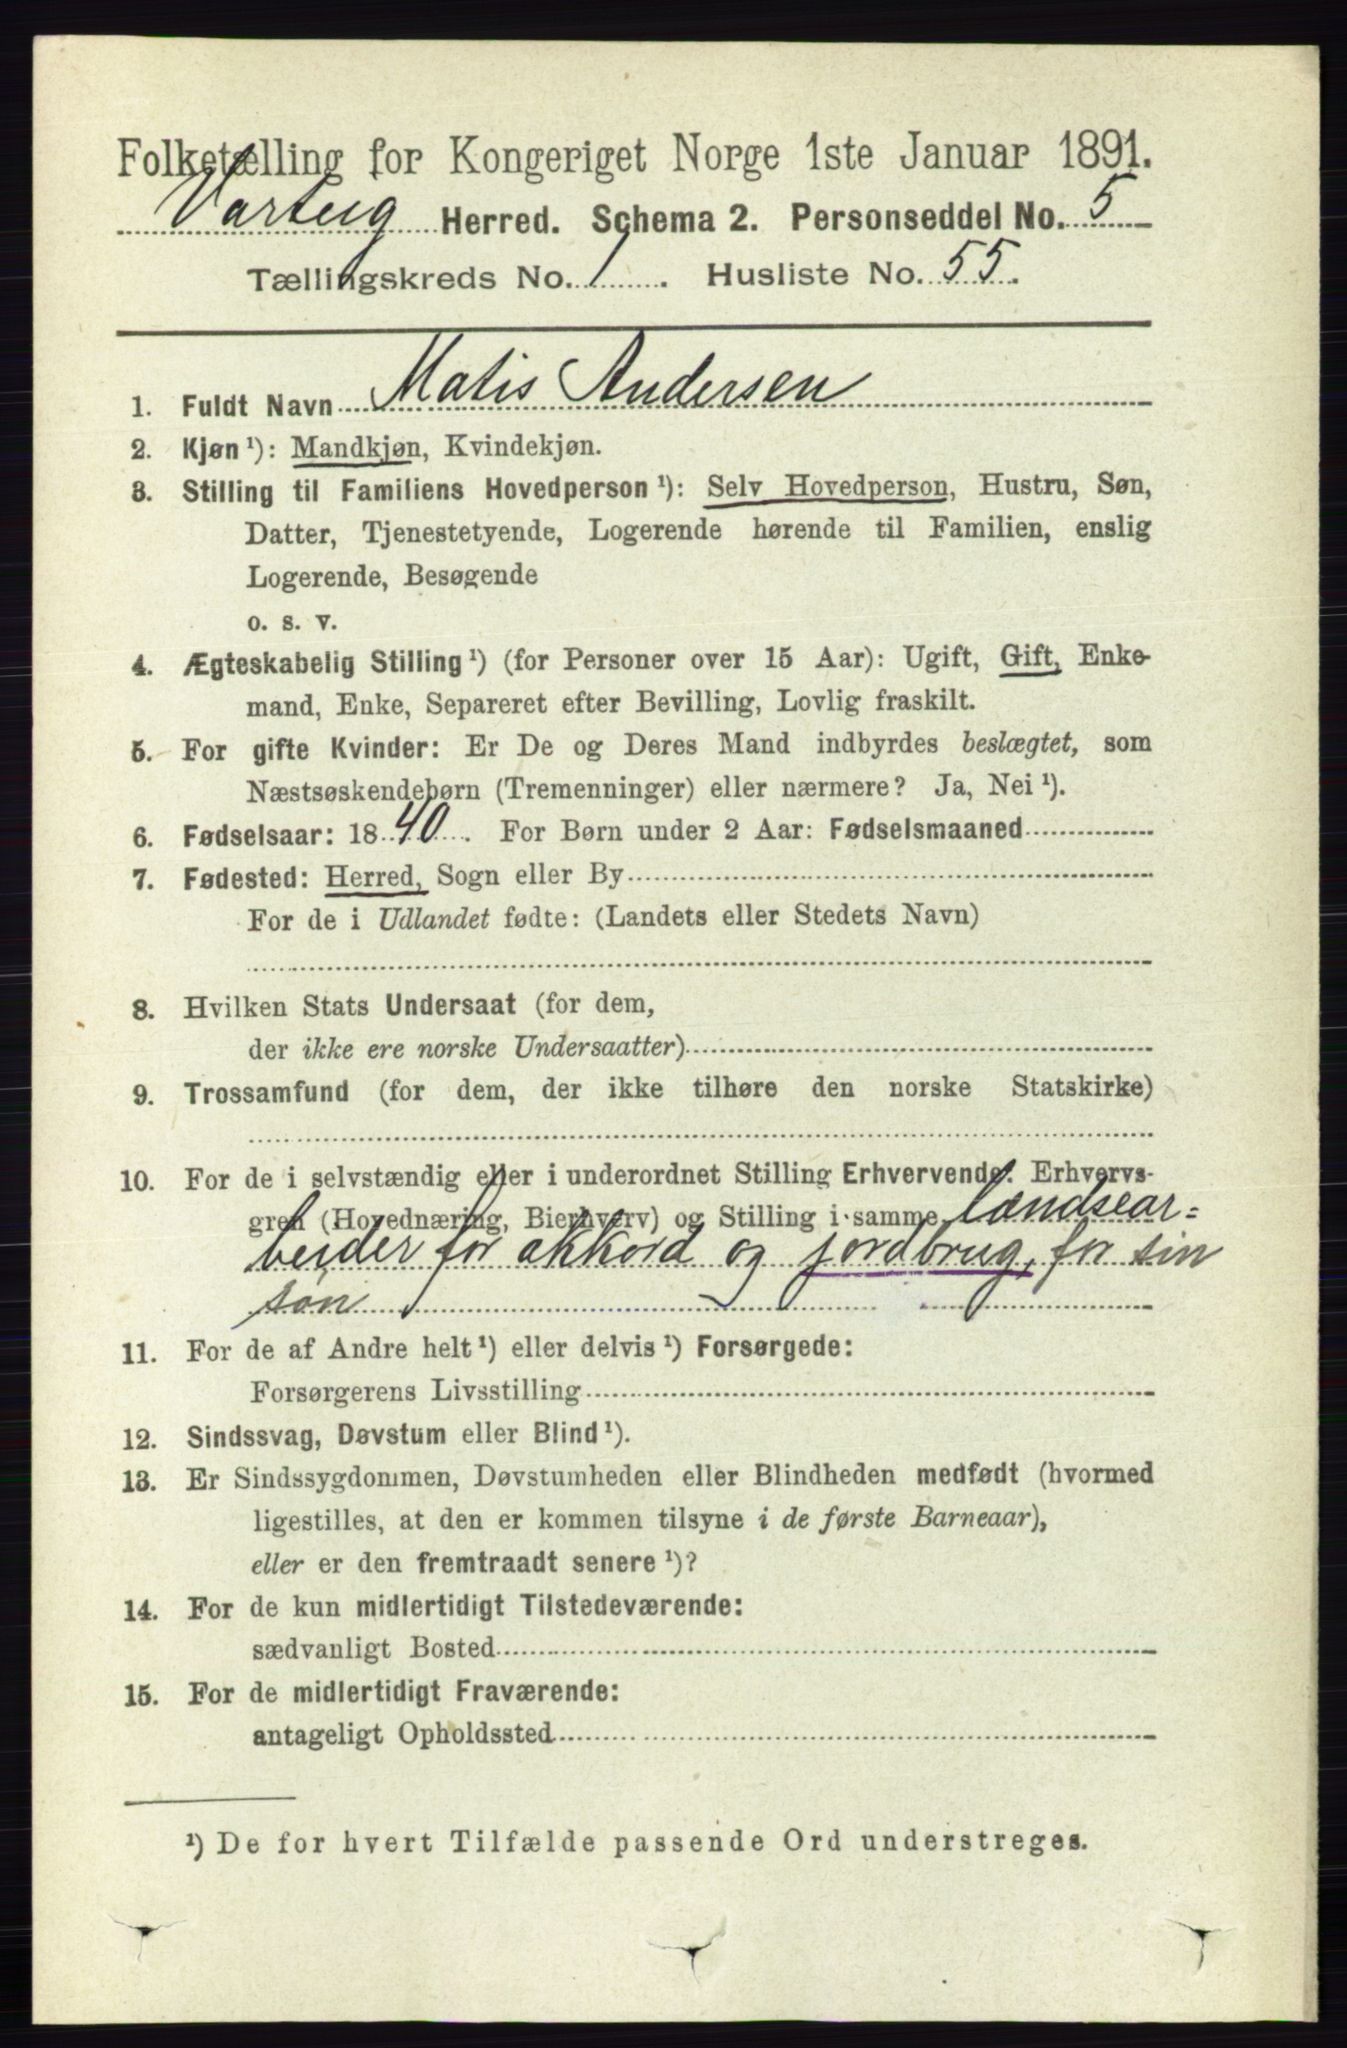 Folketælling for Kongeriget Norge 1ste Januar 1891.
Varteig Herred. Schema 2. Personseddel No. 5
Tællingskreds No. 1. Husliste No. 55.
1. Fuldt Navn Matis Andersen
2. Kjøn ¹): Mandkjøn, Kvindekjøn.
3. Stilling til Familiens Hovedperson ¹): Selv Hovedperson, Hustru, Søn,
Datter, Tjenestetyende, Logerende hørende til Familien, enslig
Logerende, Besøgende
o. s. v.
4. Ægteskabelig Stilling ¹) (for Personer over 15 Aar): Ugift, Gift, Enke-
mand, Enke, Separeret efter Bevilling, Lovlig fraskilt.
5. For gifte Kvinder: Er De og Deres Mand indbyrdes beslægtet, som
Næstsøskendebørn (Tremenninger) eller nærmere? Ja, Nei ¹).
6. Fødselsaar: 1840. For Børn under 2 Aar: Fødselsmaaned
7. Fødested: Herred, Sogn eller By
For de i Udlandet fødte: (Landets eller Stedets Navn)
8. Hvilken Stats Undersaat (for dem,
der ikke ere norske Undersaatter)
9. Trossamfund (for dem, der ikke tilhøre den norske Statskirke)
10. For de i selvstændig eller i underordnet Stilling Erhvervende: Erhvervs-
gren (Hovednæring, Bierhverv) og Stilling i samme landsear=
beider for akkord og jordbrug, for sin
sön
11. For de af Andre helt ¹) eller delvis ¹) Forsørgede:
Forsørgerens Livsstilling
12. Sindssvag, Døvstum eller Blind ¹).
13. Er Sindssygdommen, Døvstumheden eller Blindheden medfødt (hvormed
ligestilles, at den er kommen tilsyne i de første Barneaar),
eller er den fremtraadt senere ¹)?
14. For de kun midlertidigt Tilstedeværende:
sædvanligt Bosted
15. For de midlertidigt Fraværende:
antageligt Opholdssted
¹) De for hvert Tilfælde passende Ord understreges.